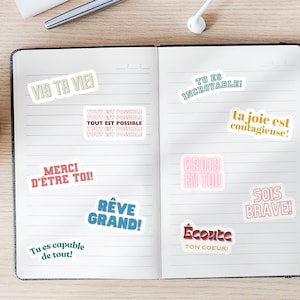 VIS TA VIE!
TOUT EST POSSIBLE
TOUT EST POSSIBLE
TOUT EST POSSIBLE
TOUT EST POSSIBLE
TOUT EST POSSIBLE
MERCI
D'ÊTRE TOI!
RÊVE
GRAND!
Tu es capable
de tout!
TU ES
INCROYABLE!
ta joie est
contagieuse!
CROIS
EN TOI!
SOIS
BRAVE!
Écoute
TON COEUR!